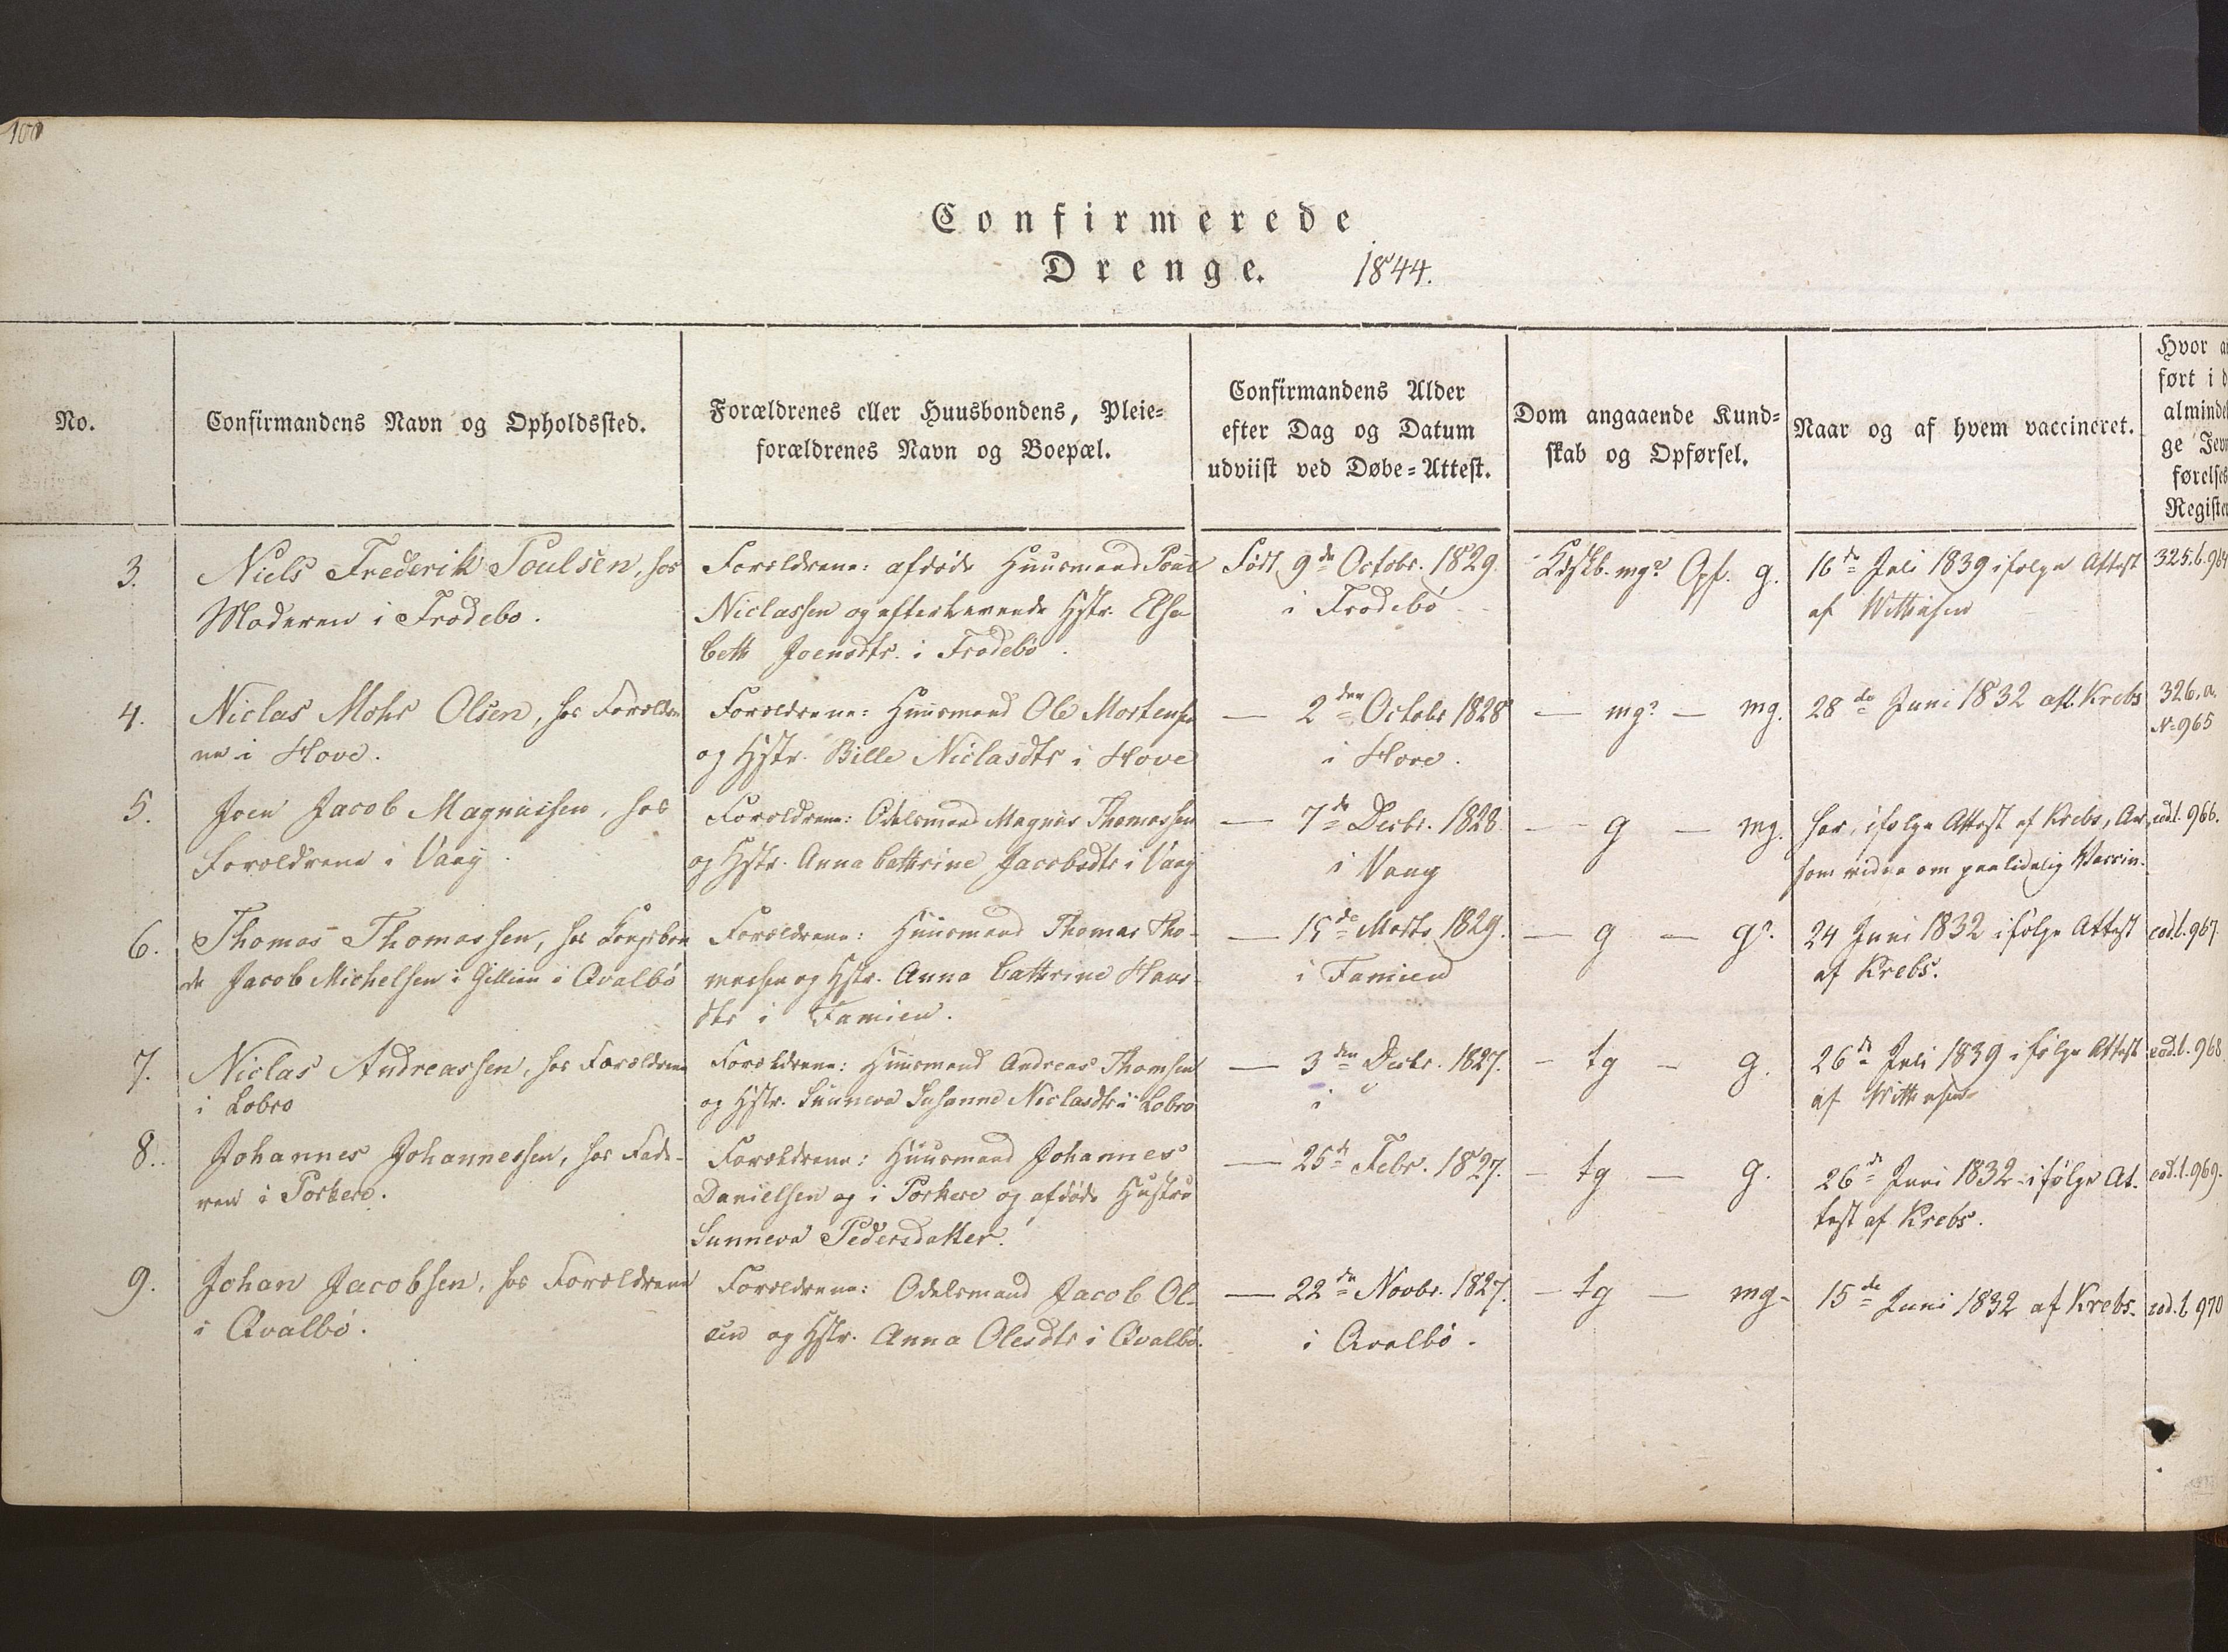 100
Confirmerede
Drenge. 1844.
No.
Confirmandens Navn og Opholdssted.
Forældrenes eller Huusbondens, Pleie-
forældrenes Navn og Boepæl.
Confirmandens Alder
efter Dag og Datum
udviist ved Døbe-Attest.
Dom angaaende Kund-
skab og Opførsel.
Naar og af hvem vaccineret.
Hvor an
ført i d
alminde
ge Jevn
førelses
Register
3.
Niels Frederik Poulsen, hos
Moderen i Frodebo.
Forældrene: afdøde Huusmand Poul
Niclassen og efterlevende Hstr. Elsa-
beth Joensdtr. i Frodebø.
Født 9de Octobr. 1829
i Frodebø
Kdskb. mg? Opf. g.
16de Juli 1839 ifølge Attest
af
325.b.964
4.
Niclas Mohr Olsen, hos Foreldre
ne i Hove.
Forældrene: Huusmand Ole Mortensen
og Hstr. Bille Niclasdtr i Hove
— 2den Octobr 1828
i Hove.
— mg? — mg.
28de Juni 1832 af Krebs
326.a.
N=965
5.
Joen Jacob Magnussen, hos
Forældrene i Vaag.
Forældrene: Odelsmand Magnus Thomassen
og Hstr. Anna Cathrine Jacobsdtr i Vaag
— 7de Decbr. 1828.
i Vaag
— g — mg.
har, ifølge Attest af Krebs, Ar
som vidne om paalidelig Vaccin.
ead.l. 966.
6.
Thomas Thomassen, hos Kongsbon
de Jacob Michelsen i i Qvalbø
Forældrene: Huusmand Thomas Tho-
massen og Hstr. Anna Cathrine Hans-
dtr i Famien.
— 15de Marts 1829.
i Famien
— g — g?
24 Juni 1832 ifølge Attest
af Krebs.
ead.l. 967.
7.
Niclas Andreassen, hos Forældrene
i Lobro
Forældrene: Huusmand Andreas Thomsen
og Hstr. Sunneva Susanne Niclasdtr i Lobro
— 3den Decbr. 1827.
i
— tg — g.
26de Juli 1839 ifølge Attest
af
ead.l. 968.
8.
Johannes Johannessen, hos Fade-
ren i Porkere.
Forældrene: Huusmand Johannes
Danielsen og i Porkere og afdøde Hustru
Sunneva Pedersdatter.
— 25de Febr. 1827.
— tg — g.
26de Juni 1832 ifølge At-
test af Krebs.
ead.l. 969.
9.
Johan Jacobsen, hos Forældrene
i Qvalbø.
Forældrene: Odelsmand Jacob Ol-
sen og Hstr. Anna Olesdtr i Qvalbø.
— 22de Novbr. 1827.
i Qvalbø.
— tg — mg.
15de Juni 1832 af Krebs.
ead.l. 970